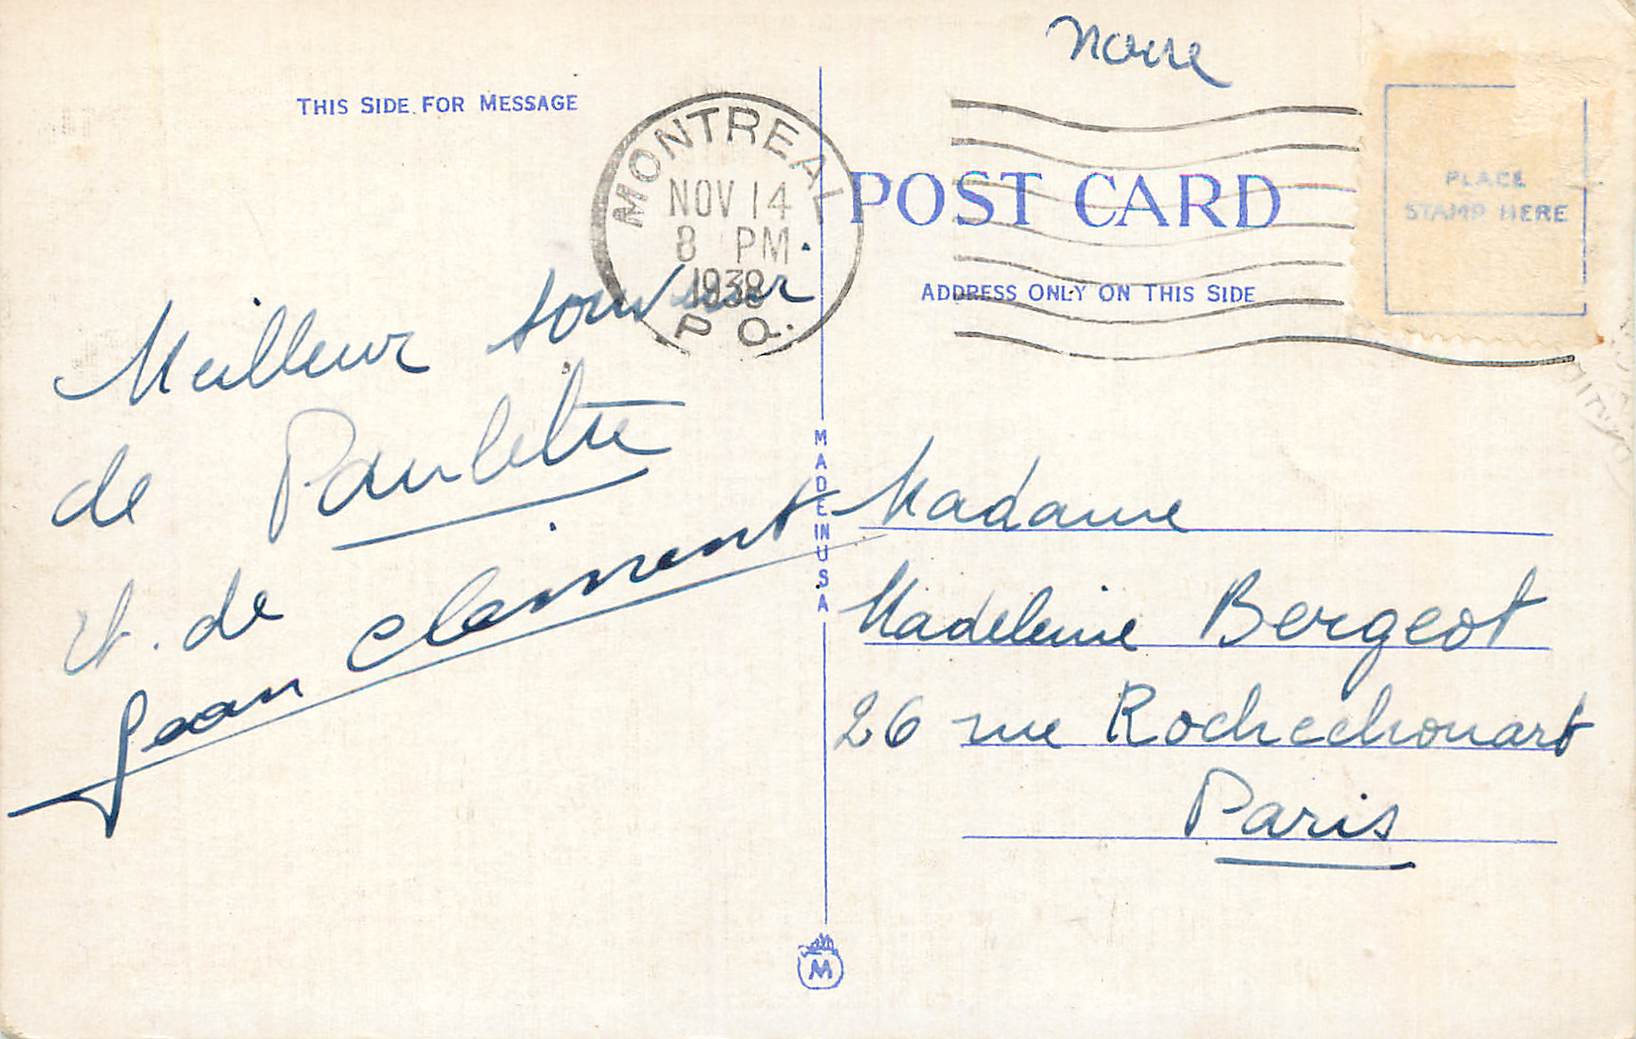 THIS SIDE FOR MESSAGE
MONTREAL
NOV 14
8 PM
1938
P Q.
POST CARD
ADDRESS ONLY ON THIS SIDE
PLACE
STAMP HERE
Meilleur souvenir
de Paulette
et de
Jean Clément
MADE IN USA
Madame
Madeleine Bergeot
26 rue Rochechouart
Paris
M